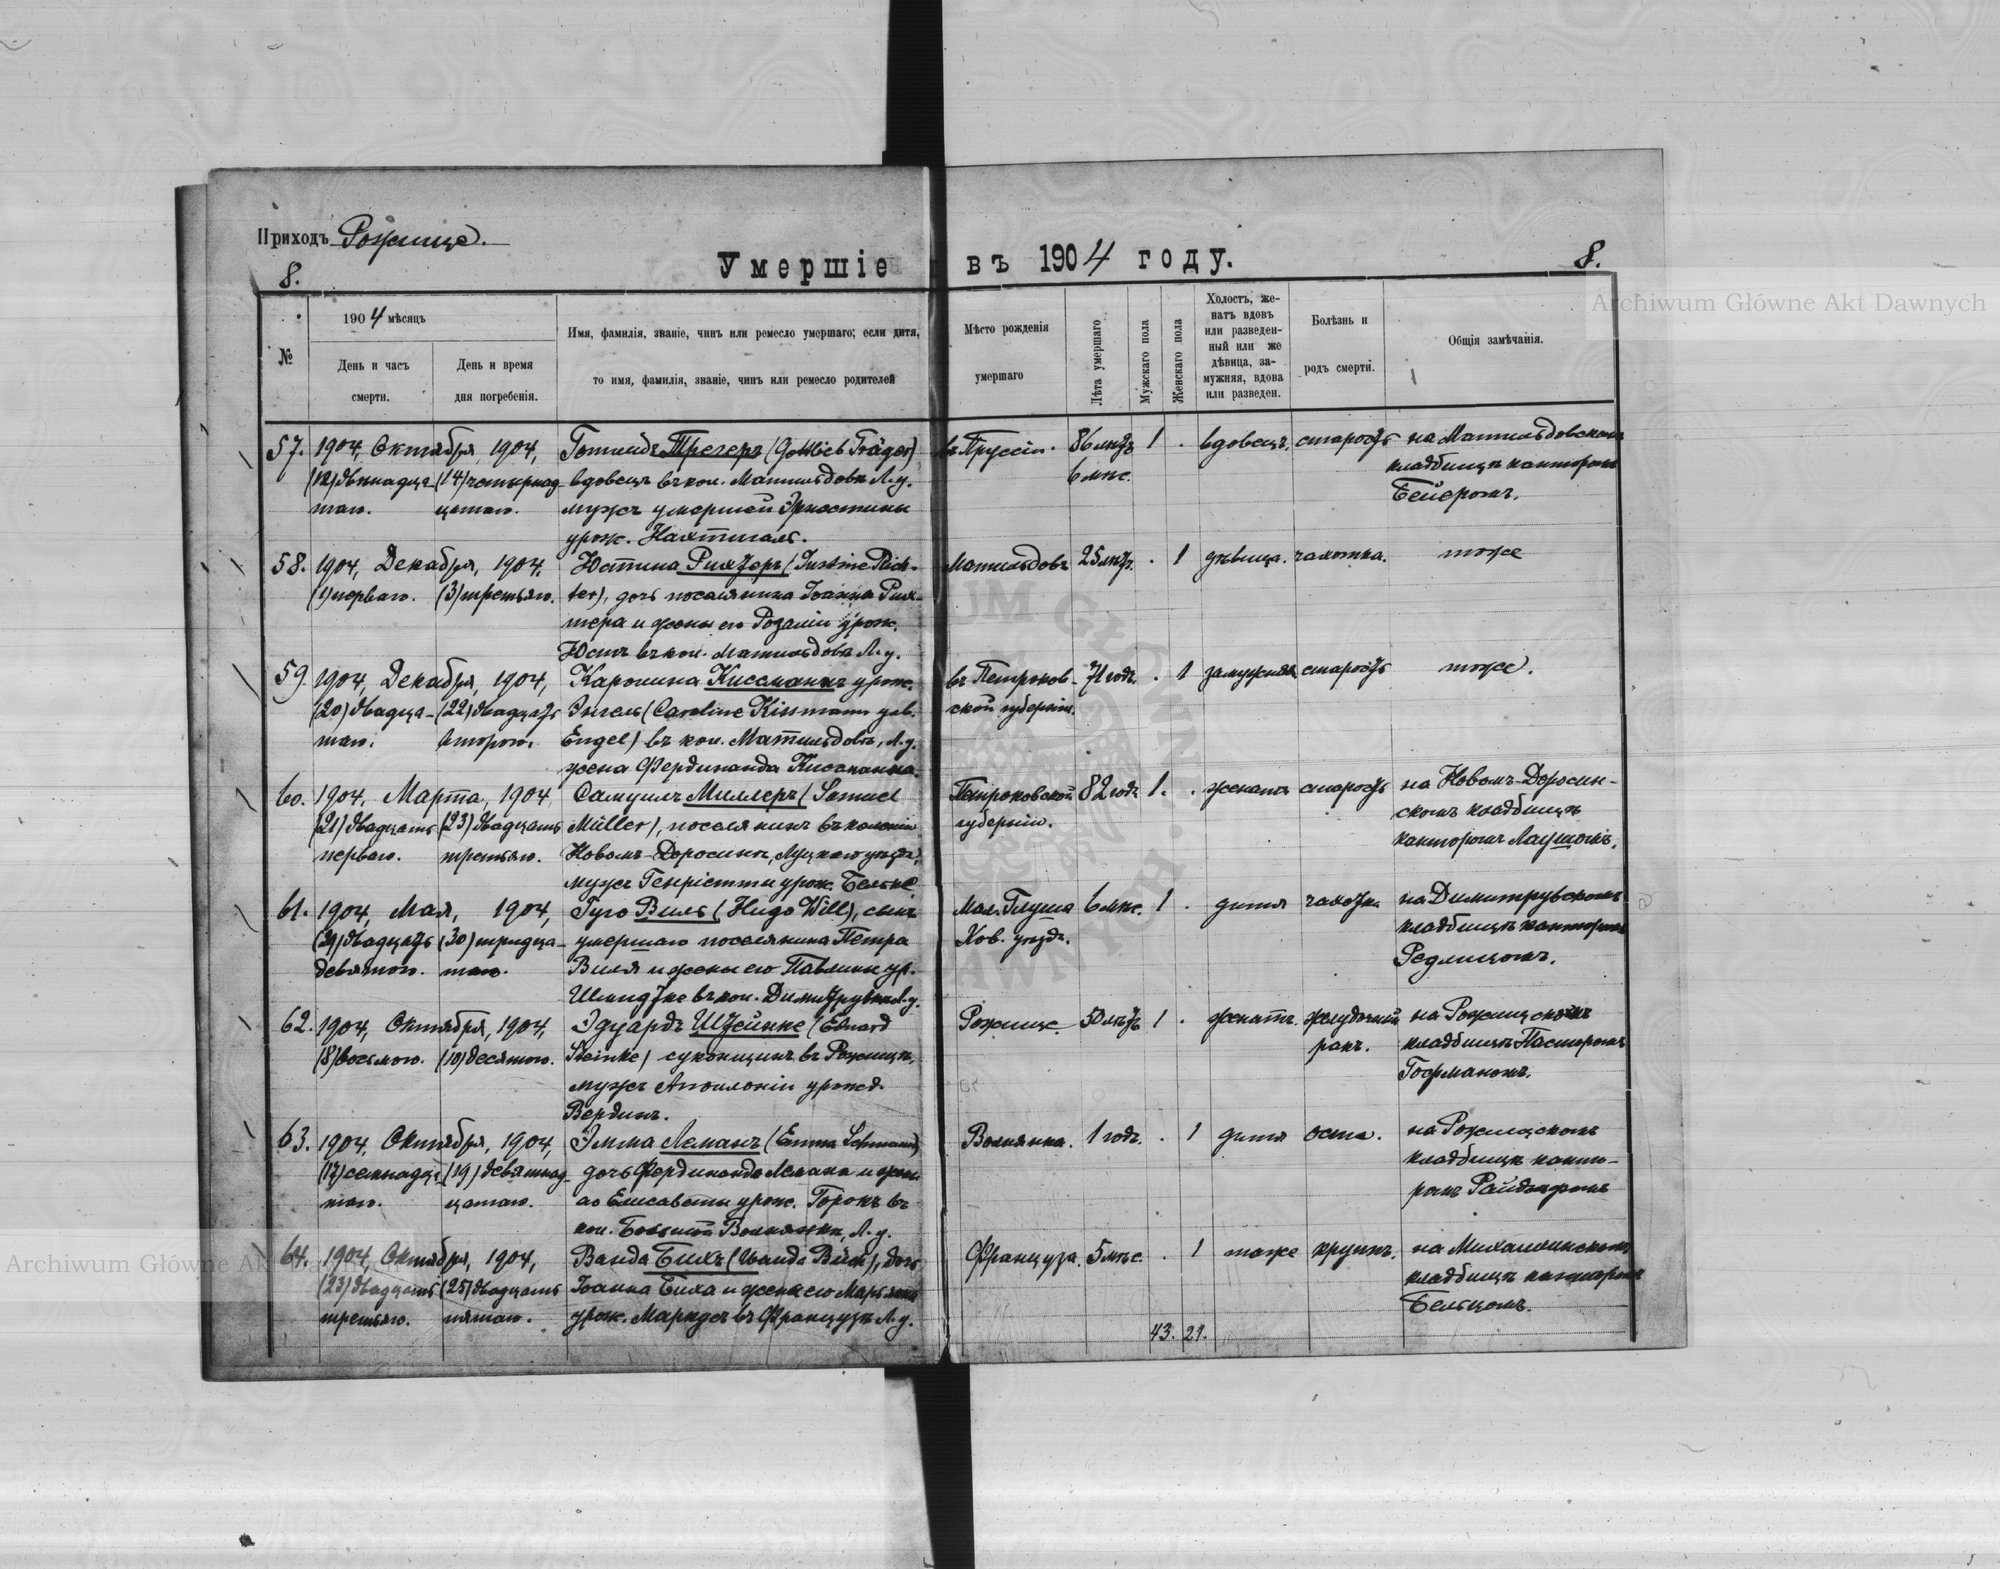 Приходъ Рожище.
8.
Умершіе въ 1904 году.
8.
№
1904 мѣсяцъ
День и часъ смерти.
День и время дня погребенія.
Имя, фамилія, званіе, чинъ или ремесло умершаго; если дитя,
то имя, фамилія, званіе, чинъ или ремесло родителей
Мѣсто рожденія
умершаго
Лѣта умершаго
Мужскаго пола
Женскаго пола
Холостъ, же-
натъ вдовъ
или разведен-
ный или же
дѣвица, за-
мужняя, вдова
или разведен.
Болѣзнь и
родъ смерти.
Общія замѣчанія.
57. 1904, Октября, 1904, Готлибъ Трегеръ (Gottlieb Träger) въ Пруссіи. 86 лѣтъ 1 . вдовецъ. старость на Матильдовскомъ
(12) двѣнадца- (14) четырнад- вдовецъ въ кол. Матильдовкѣ Л.у. 6 мѣс. кладбищѣ канторомъ
таго. цатаго. мужъ умершей Эрнестины Бейеромъ.
урож. Нахтигаль.
58. 1904, Декабря, 1904, Юстина Рихтеръ (Justine Rich- Матильдовъ 25 лѣтъ. . 1 дѣвица. чахотка. тоже
(1) перваго. (3) третьяго. ter), дочь поселянина Іоанна Рих-
тера и жены его Розаліи урож.
Юстъ въ кол. Матильдовкѣ Л.у.
59. 1904, Декабря, 1904, Каролина Кисманнъ урож. въ Петроков- 71 годъ. . 1 замужняя старость тоже.
(20) двадца- (22) двадцать Энгель (Caroline Kissmann geb. ской губерніи.
таго. второго. Engel) въ кол. Матильдовкѣ, Л.у.
жена Фердинанда Кисманна.
60. 1904, Марта, 1904 Самуилъ Миллеръ (Samuel Петроковской 82 годъ 1. . женатъ старость на Новомъ-Доросин-
(21) двадцать (23) двадцать Müller), поселянинъ въ колоніи губерніи. скомъ кладбищѣ
перваго. третьяго. Новомъ-Доросинѣ, Луцкаго уѣзда, канторомъ
мужъ Генріетты урож.
61. 1904, Мая, 1904, Гуго Виль (Hugo Will), сынъ Мал. Глуша 6 мѣс. 1 . дитя чахотка на Димитрувскомъ
(29) двадцать (30) тридца- умершаго поселянина Петра Ков. уѣзд. кладбищѣ канторомъ
девятого. таго. Виля и жены его Павлины ур. Редлицомъ.
Шмидтке въ кол. Димитрувкѣ Л.у.
62. 1904, Октября, 1904, Эдуардъ Штейнке (Eduard Рожище. 50 лѣтъ 1 . женатъ. желудочный на Рожищскомъ
(8) восьмого. (10) десятого. Steinke) суконщикъ въ Рожищѣ, ракъ. кладбищѣ Пасторомъ
мужъ Аполлоніи урожд. Гофманомъ.
Вердинъ.
63. 1904, Октября, 1904, Эмма Леманъ (Emma Lehmann) Волнянка. 1 годъ. . 1 дитя оспа. на Рожищскомъ
(17) семнадца- (19) девятнад- дочь Фердинанда Лемана и жены кладбищѣ канто-
таго. цатаго. его Елисаветы урож. Горокъ въ ромъ
кол. Большой Волнянкѣ, Л.у.
64. 1904, Октября, 1904, Ванда Бихъ (Wanda Büch), дочь Француза. 5 мѣс. . 1 тоже крупъ. на Михалинскомъ
(23) двадцать (25) двадцать Іоанна Биха и жены его Марьянны кладбищѣ канторомъ
третьяго. пятаго. урож. въ Французѣ Л.у. Бельцомъ.
43. 21.
Archiwum Główne Akt Dawnych
Archiwum Główne Akt